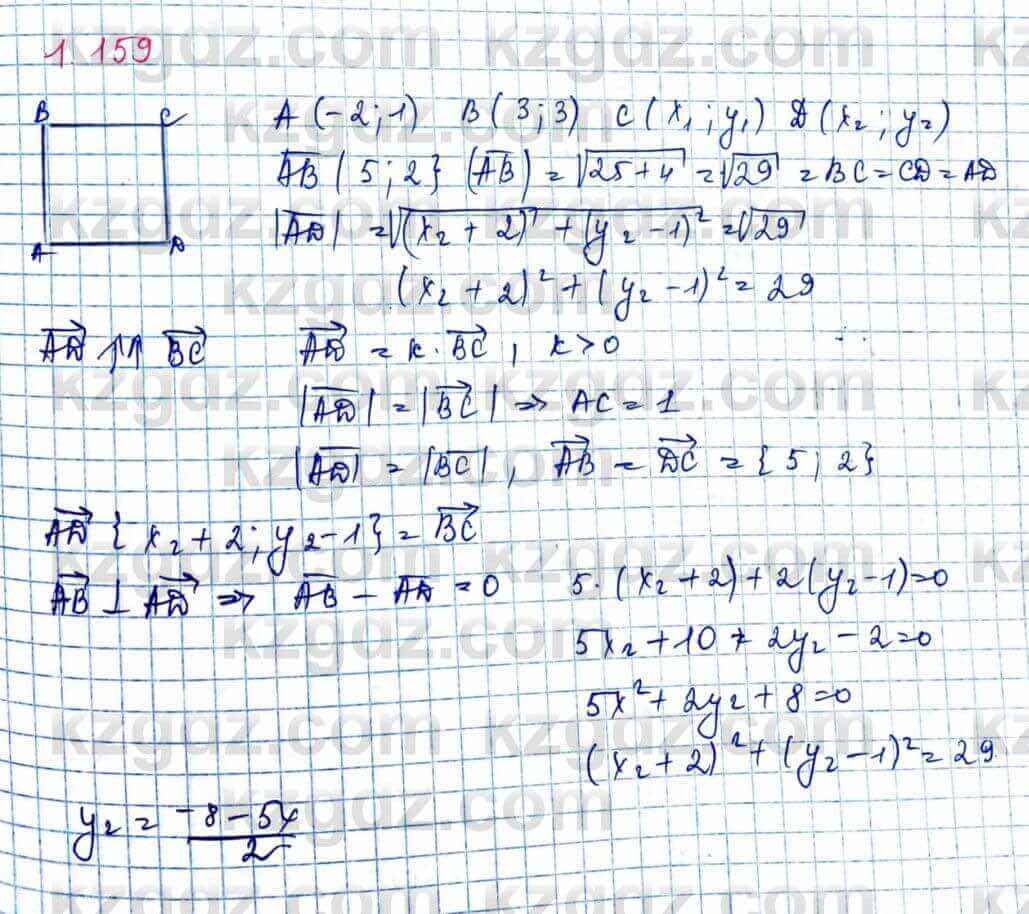 1.159
B C
A D
A (-2; 1) B (3; 3) C (x₁; y₁) D (x₂; y₂)
AB { 5; 2 } (AB) = √25+4 = √29 = BC = CD = AD
|AD| = √(x₂ + 2)² + (y₂ - 1)² = √29
(x₂ + 2)² + (y₂ - 1)² = 29
AD ↑↑ BC AD = k · BC, k > 0
|AD| = |BC| ⇒ AC = 1
|AD| = |BC|, AB = DC = { 5; 2 }
AD { x₂ + 2; y₂ - 1 } = BC
AB ⊥ AD ⇒ AB - AD = 0 5·(x₂ + 2) + 2(y₂ - 1) = 0
5x₂ + 10 + 2y₂ - 2 = 0
5x² + 2y₂ + 8 = 0
(x₂ + 2)² + (y₂ - 1)² = 29
y₂ = -8 - 5x / 2
kzgdz.com